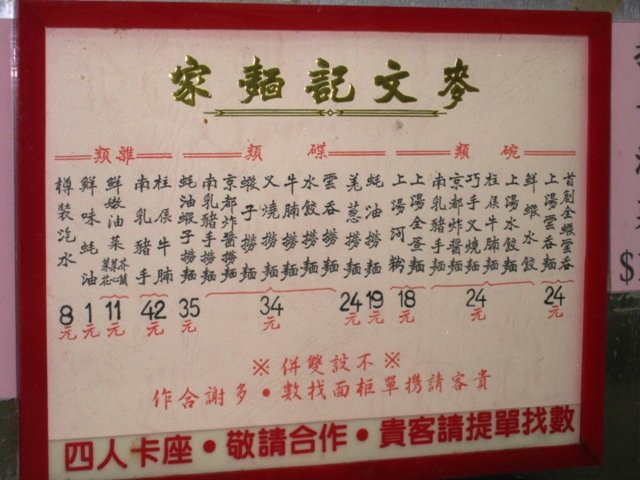 麥文記麵家
碗類
首創全蝦雲吞
上湯雲吞麵
24元
鮮蝦水餃
上湯水餃麵
柱侯牛腩麵
巧手叉燒麵
京都炸醬麵
南乳豬手麵
24元
上湯全蛋麵
上湯河粉
18元
碟類
蚝油撈麵
19元
羗葱撈麵
24元
雲吞撈麵
水餃撈麵
牛腩撈麵
叉燒撈麵
蝦子撈麵
京都炸醬撈麵
南乳豬手撈麵
34元
蚝油蝦子撈麵
35元
雜類
柱侯牛腩
南乳豬手
42元
鮮嫩油菜
芥蘭
菜心
11元
鮮味蚝油
1元
樽裝汽水
8元
※不設雙併※
貴客請携單柜面找數•多謝合作
四人卡座•敬請合作•貴客請提單找數
$